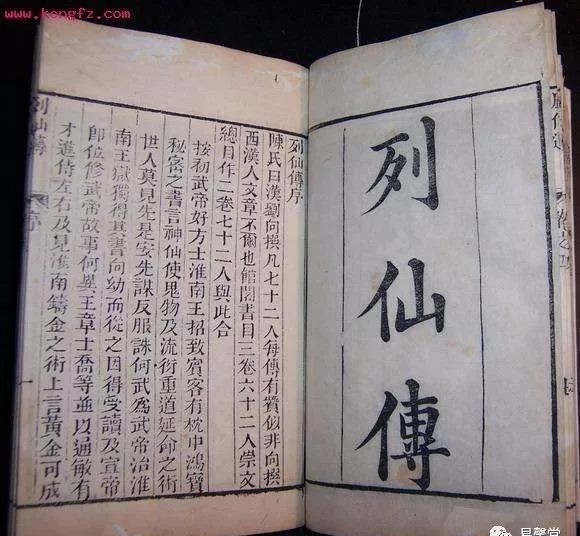 www.kongfz.com
列仙傳
列仙傳序
陳氏曰漢劉向撰凡七十二人每傳有贊似非向撰
西漢人文章不爾也館閣書目三卷六十二人崇文
總目作二卷七十二人與此合
按初武帝好方士淮南王招致賓客有枕中鴻寶
秘密之書言神仙使鬼物及流衍重道延命之術
世人莫見先是安先謀反服誅何武為武帝治淮
南王獄獨得其書向幼而從之因得受讀及宣帝
即位修武帝故事何與王章士喬等並以通敏有
才進侍左右及見淮南鑄金之術上言黃金可成
列仙傳 序 一
易馨堂